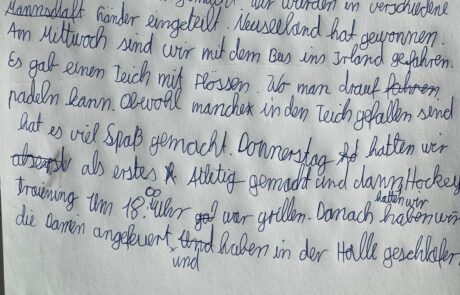 gemacht. Wir wurden in verschiedene
Mannschaft Länder eingeteilt. Neuseeland hat gewonnen.
Am Mittwoch sind wir mit dem Bus ins Irland gefahren.
Es gab einen Teich mit Flössen. Wo man drauf fahren
padeln kann. Obwohl manche in den Teich gefallen sind
hat es viel Spaß gemacht. Donnerstag hatten wir
als erstes Atletig gemacht und dann Hockey
training Um 18.00 Uhr war grillen. Danach hatten wir haben wir
die Damen angefeuert und haben in der Halle geschlafen.